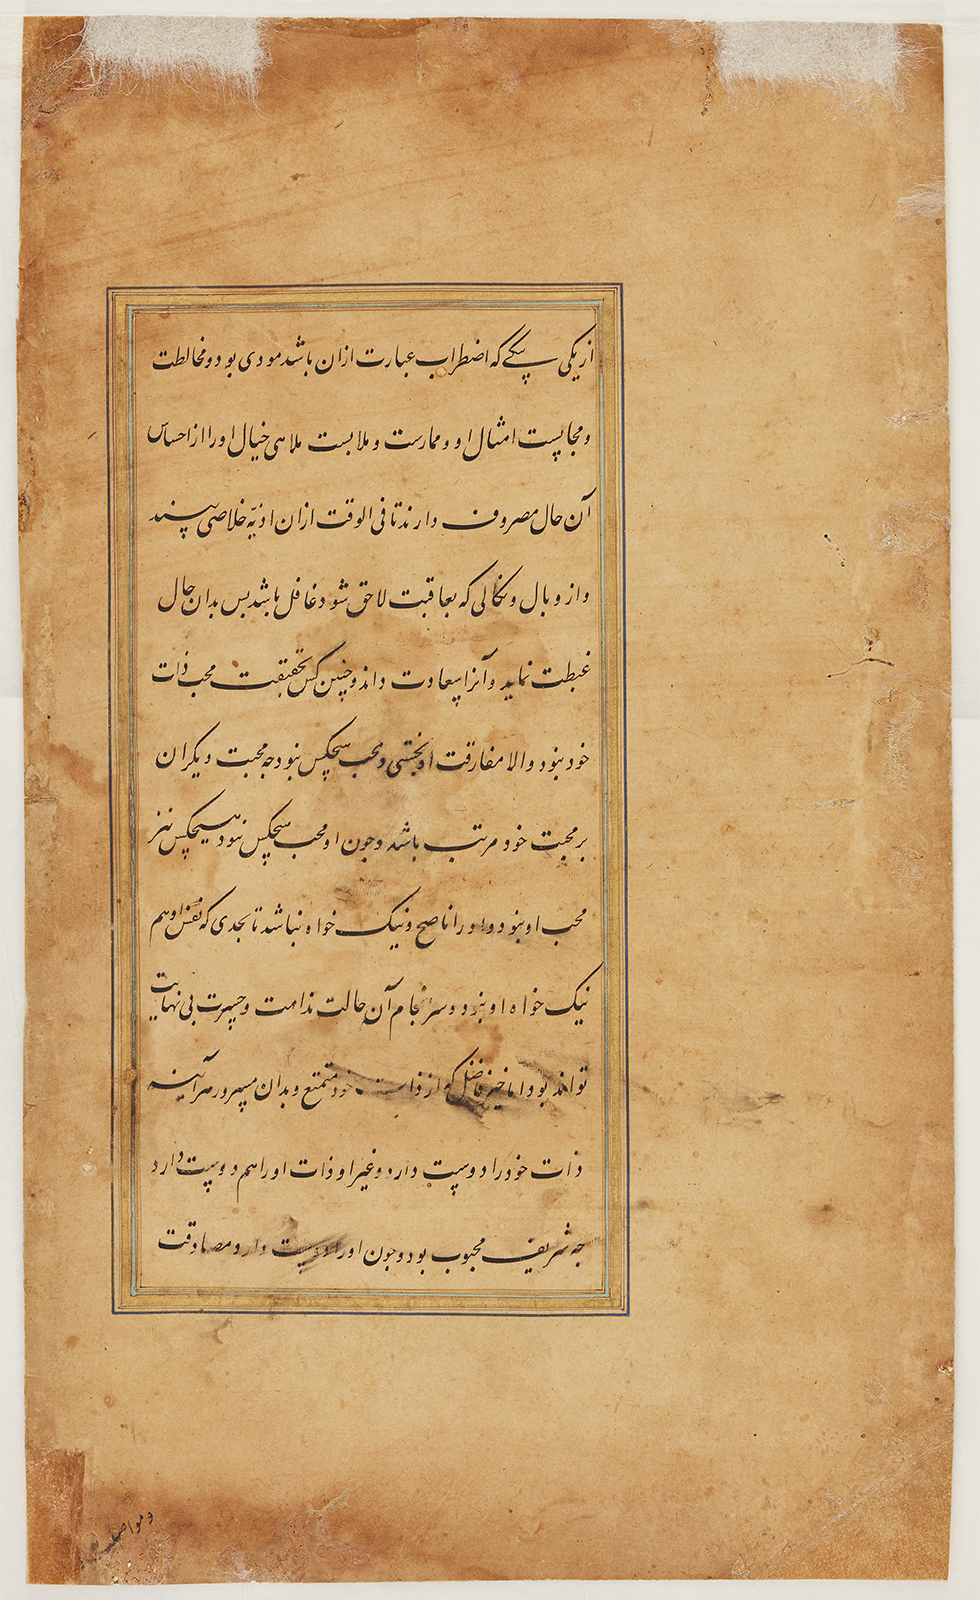 از یکی بیکی که اضطراب عبارت ازان باشد مودی بود و مخالطت
و مجالست امثال او و ممارست و ملابست ملاهی خیال او را از احساس
آن حال مصروف دارند تا فی الوقت ازان اذیّه خلاصی بیند
و از وبال و نکالی که بعاقبت لاحق شود غافل باشد پس بدان حال
غبطت نماید و آنرا سعادت داند و چنین کس بحقیقت محب ذات
خود نبود والا مفارقت او نجستی و محب هیچکس نبود چه محبت دیگران
بر محبت خود مرتب باشد و چون او محب هیچکس نبود هیچکس نیز
محب او نبود و او را ناصح و نیک خواه نباشد تا بحدی که نفس او هم
نیک خواه او نبود و سرانجام آن حالت ندامت و حسرت بی نهایت
تواند بود و اما خیر فاضل که از ذات خود متمتع و بدان مسرور هرآینه
ذات خود را دوست دارد و غیر او ذات او را هم دوست دارد
چه شریف محبوب بود و چون او را دوست دارد و مصادقت
و مواصلت